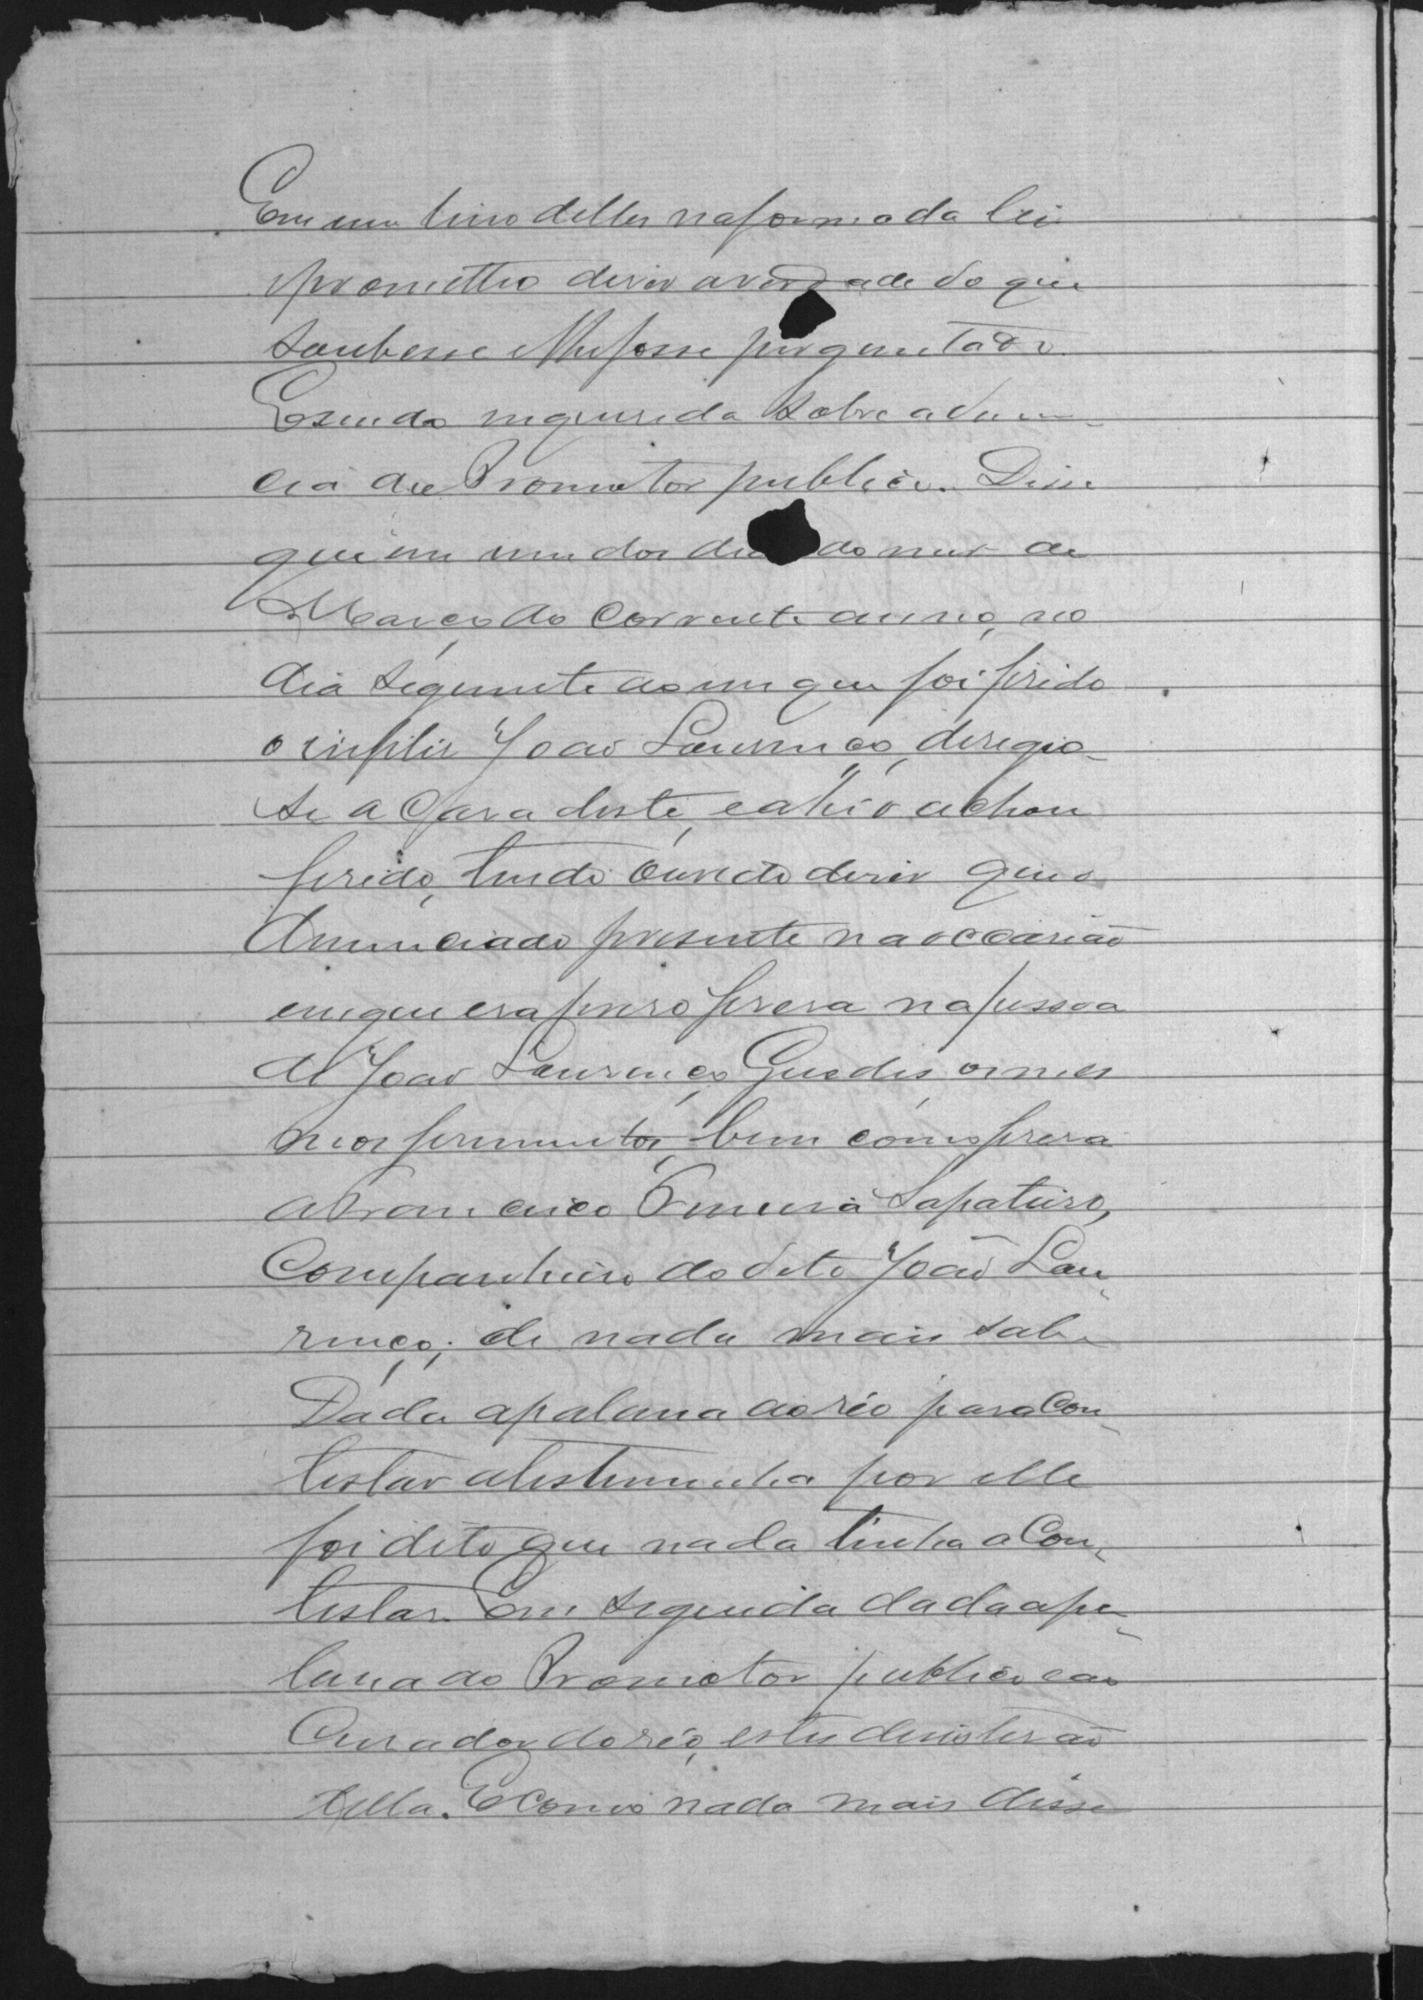 Em um livro delles na forma da lei
prometteo diser a verdade do que
soubesse e lhe fosse perguntado.
E sendo inquerida sobre a denun-
cia do Promotor publico. Disse
que em um dos dias do mez de
Março do corrente anno, no
dia seguinte ao em que foi ferido
o infeliz João Lourenço, deregio-
se a casa deste, e ahi o achou
ferido, tendo ouvido diser que o
denunciado presente na occasião
em que era preso fisera na pessoa
de João Lourenço Guedes, os mes
mos ferimentos, bem como fisera
a Francisco Sapateiro,
Companheiro do dito João Lou-
renço; de nada mais sabe.
Dada a palavra ao réo para con-
testar a testemunha por elle
foi dito que nada tinha a con-
testar. Em seguida dada a pa-
lavra ao Promotor publico e ao
Curador do réo, estes desisterão
della. E como nada mais disse